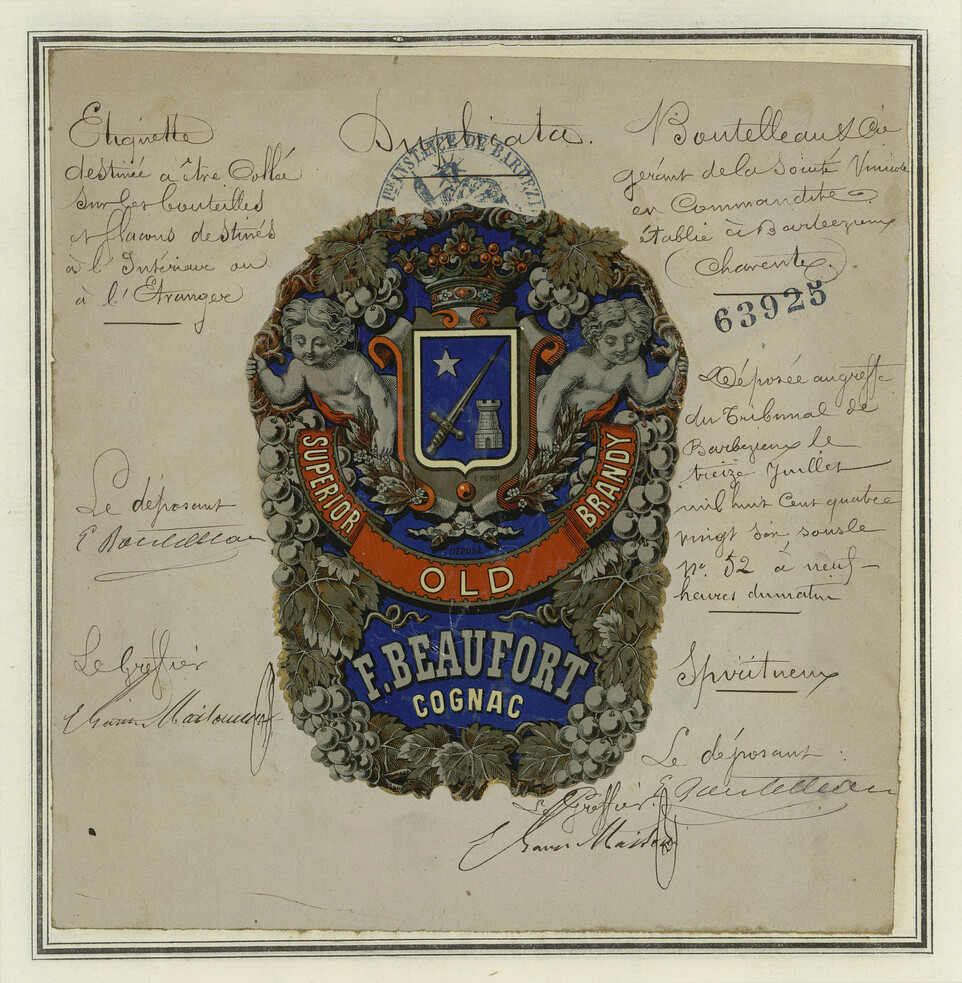 Etiquette
destinée à être Collée
sur les bouteilles
et flacons destinés
à l'Intérieur ou
à l'Etranger
Duplicata.
Boutelleau & Cie
gérant de la Société Vinicole
en Commandite
établie à Barbezieux
(Charente).
63925
1re INSTANCE DE BARBEZI
SUPERIOR
OLD
BRANDY
E. PICHOT
DÉPOSÉ
F. BEAUFORT
COGNAC
Déposée au greffe
du Tribunal de
Barbezieux le
treize Juillet
mil huit Cent quatre
vingt six sous le
no. 52 à neuf
heures du matin
Spiritueux
Le déposant
E Boutelleau
Le Greffier
Le déposant
E Boutelleau
Le Greffier.